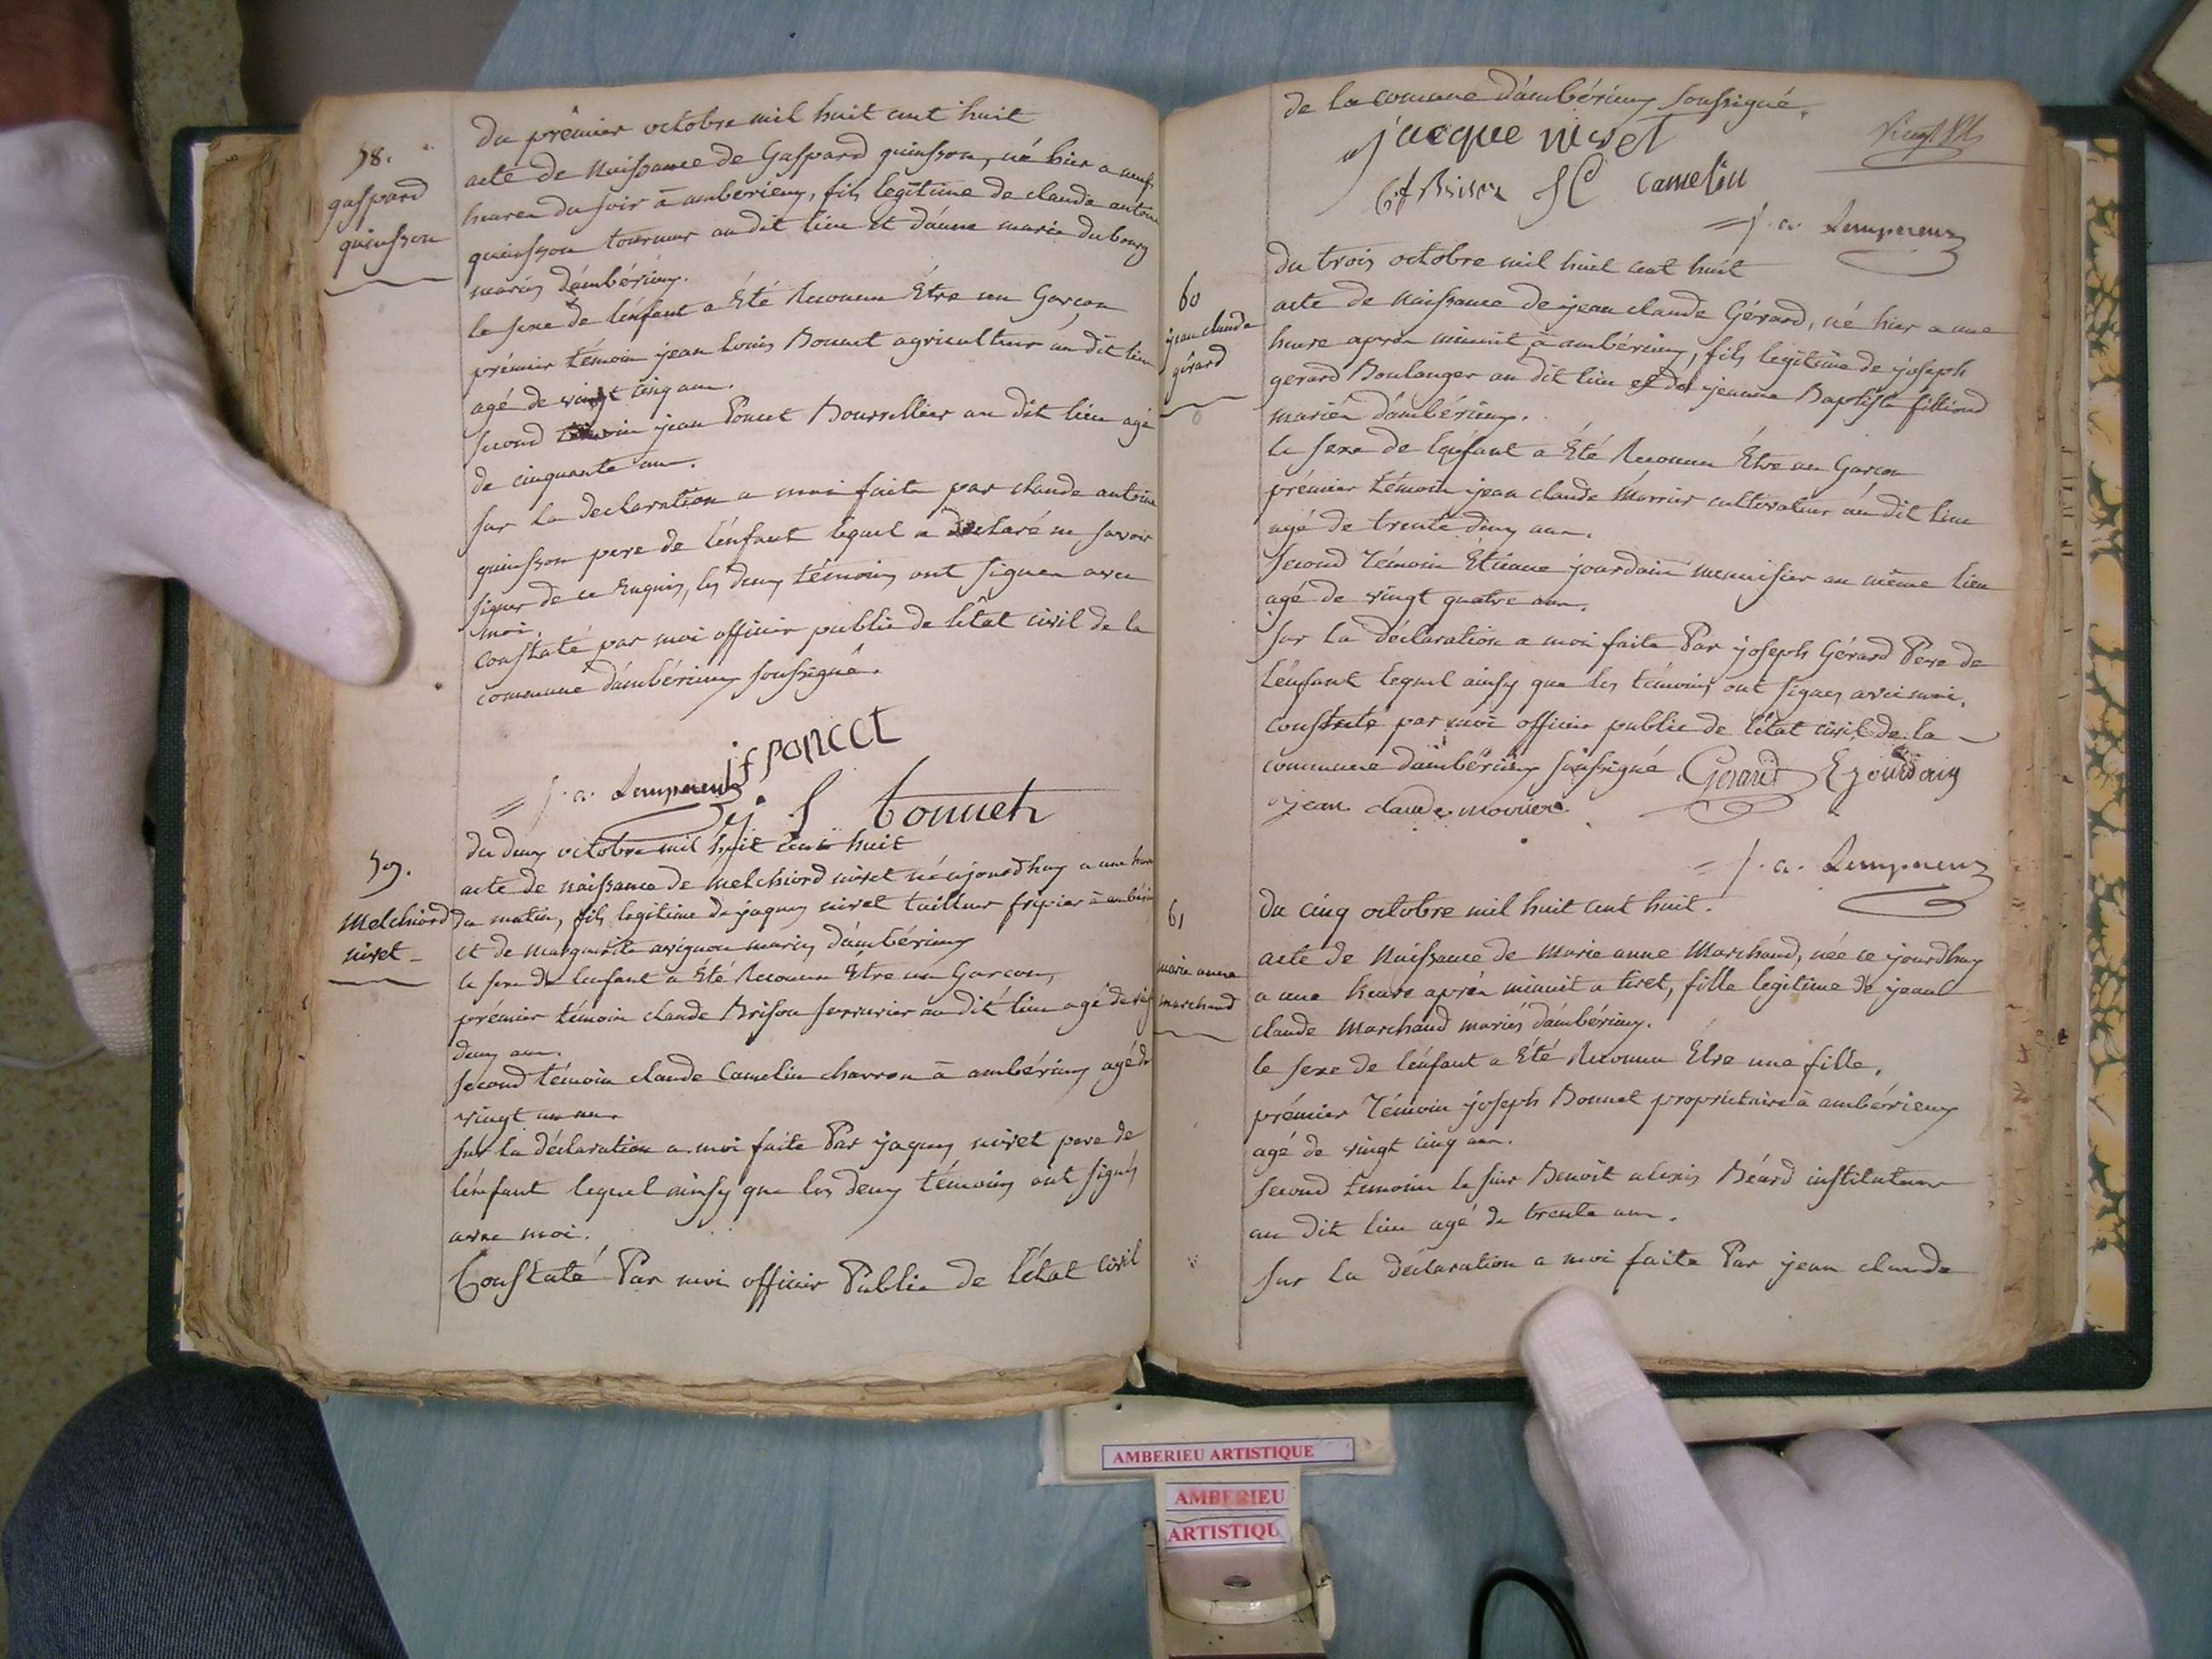 58.
gaspard
quinsson
du prémier octobre mil huit cent huit
acte de Naissance de Gaspard quinsson, né hier a neuf
heures du soir à ambérieux, fils legitime de claude antoine
quinsson tourneur au dit lieu Et d'anne marie dubourg
mariés d'ambérieux.
le sexe de l'enfant a Été Reconnu Être un Garçon
prémier témoin jean Louis Bonnet agriculteur au dit lieu
agé de vingt cinq ans.
second témoin jean Poncet Bourrellier au dit lieu agé
de cinquante ans.
sur la declaration a moi faite par claude antoine
quinsson pere de l'enfant lequel a déclaré ne savoir
signer de ce Enquis, les deux témoins ont signer avec
moi.
constaté par moi officier public de l'état civil de la
commune d'ambérieux soussigné.
jf poncet
= j. a. Lempereur
j. l bonnet
59.
Melchiord
nivet
du deux octobre mil huit cent huit
acte de naissance de melchiord nivet né ajourdhuy a une heure
du matin, fils legitime de jaques nivet tailleur fripier à
et de marguerite avignon mariés d'ambérieux
le sexe de l'enfant a Été Reconnu Être un Garcon,
prémier témoin claude Brison serrurier au dit lieu agé de
deux ans.
second témoin claude Camelin charron à ambérieux agé de
vingt un ans.
sur la déclaration a moi faite Par jaques nivet pere de
l'enfant lequel ainsy que les deux témoins ont signés
avec moi.
Constaté Par moi officier Public de l'état civil
de la comune d'ambérieux soussigné.
jacque nivet
Brison
camelin
= j. a. Lempereur
60
jean claude
gérard
du trois octobre mil huit cent huit
acte de naissance de jean claude Gérard, né hier a une
heure après minuit à ambérieux, fils legitime de joseph
gerard Boulanger au dit lieu et de jeanne Baptiste filliond
mariés d'ambérieux.
le sexe de l'enfant a Été Reconnu Être un Garcon
prémier témoin jean claude Morrier cultivateur au dit lieu
agé de trente deux ans.
second Témoin Étienne jourdain menuisier au même lieu
agé de vingt quatre ans.
sur la déclaration a moi faite Par joseph Gérard Pere de
l'enfant lequel ainsy que les témoins ont signés avec moi.
constaté par moi officier public de l'état civil de la
commune d'ambérieux soussigné Gerard E jourdain
jean claude morrier
= j. a. Lempereur
61
marie anne
marchand
du cinq octobre mil huit cent huit.
acte de Naissance de marie anne Marchand, née ce jourdhuy
a une heure après minuit a tiret, fille legitime de jean
claude Marchand mariés d'ambérieux.
le sexe de l'enfant a Été Reconnu Être une fille.
prémier Témoin joseph Bonnet proprietaire à ambérieux
agé de vingt cinq ans.
second témoin le sieur Benoît alexis Béard instituteur
au dit lieu agé de trente ans.
sur la déclaration a moi faite Par jean claude
AMBERIEU ARTISTIQUE
AMBERIEU
ARTISTIQU